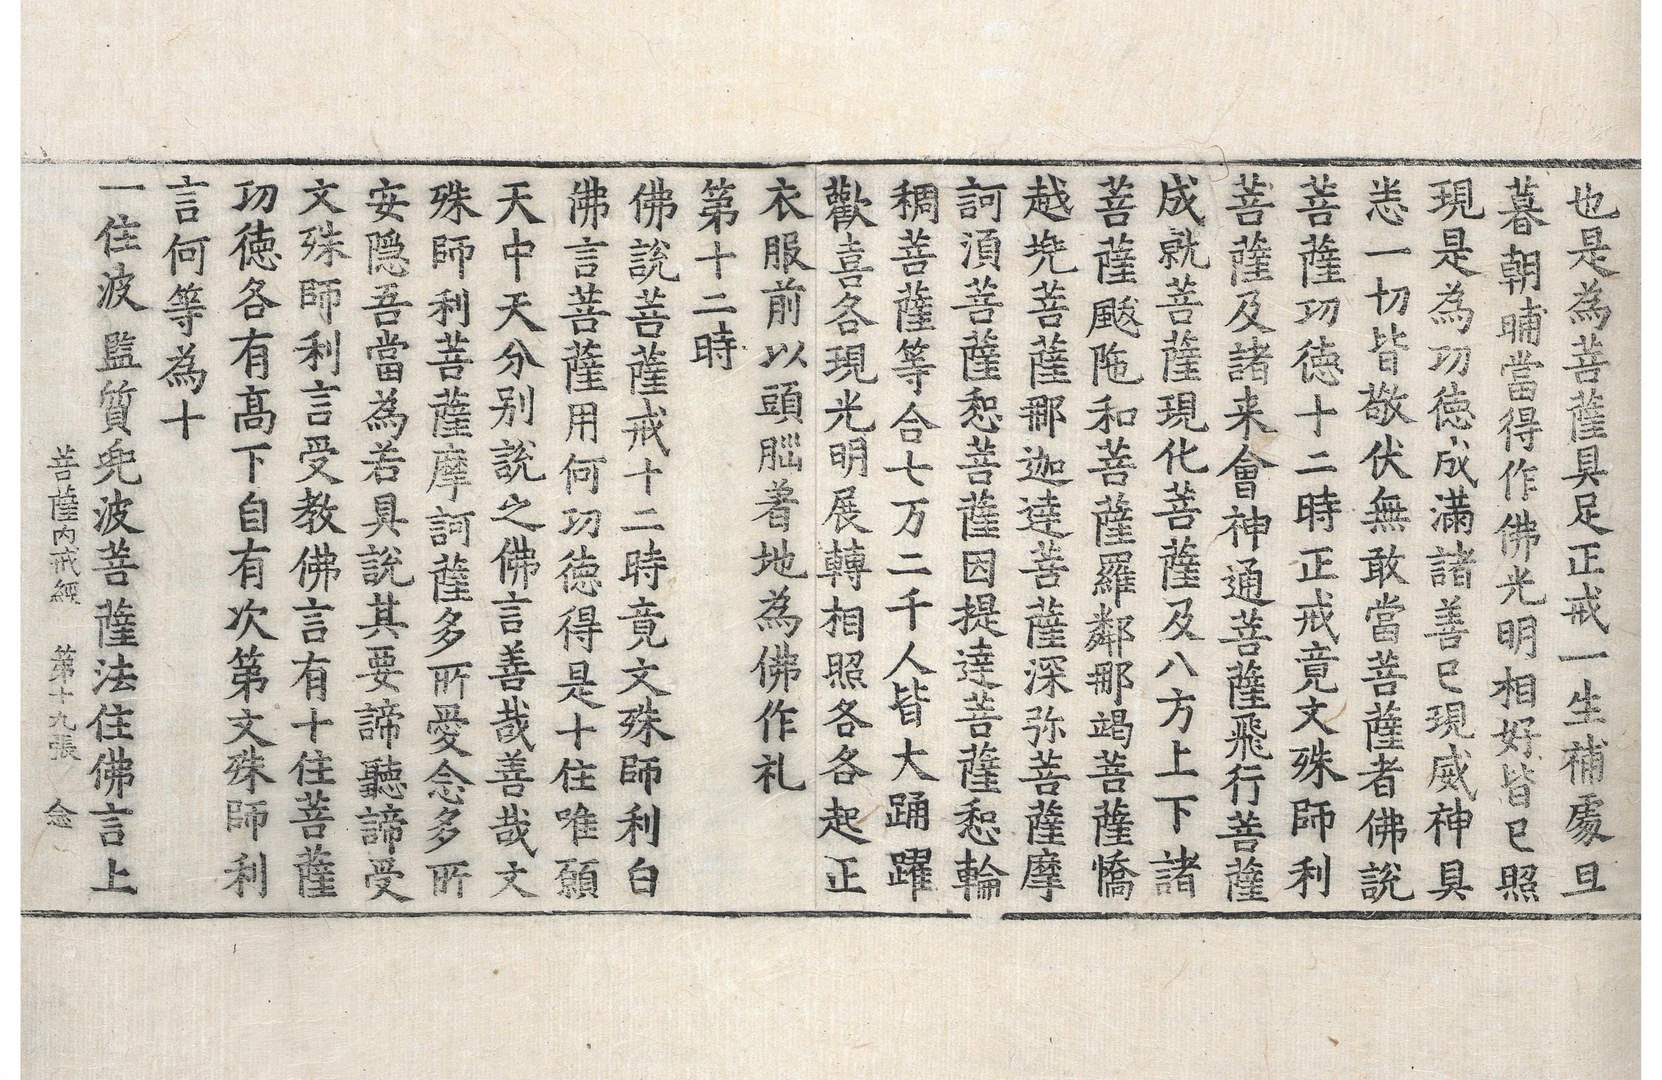 也是為菩薩具足正戒一生補處旦
暮朝晡當得作佛光明相好皆已照
現是為功徳成滿諸善已現威神具
恙一切皆敬伏無敢當菩薩者佛說
菩薩功徳十二時正戒竟文殊師利
菩薩及諸来會神通菩薩飛行菩薩
成就菩薩現化菩薩及八方上下諸
菩薩颰陁和菩薩羅鄰那竭菩薩憍
越兠菩薩那迦達菩薩深弥菩薩摩
訶湏菩薩惒菩薩因提達菩薩惒輪
稠菩薩等合七万二千人皆大踊躍
歡喜各現光明展轉相照各各起正
衣服前以頭腦著地為佛作礼
第十二時
佛說菩薩戒十二時竟文殊師利白
佛言菩薩用何功徳得是十住唯願
天中天分别說之佛言善哉善哉文
殊師利菩薩摩訶薩多所愛念多所
安隱吾當為若具說其要諦聽諦受
文殊師利言受教佛言有十住菩薩
功徳各有高下自有次第文殊師利
言何等為十
一住波監質兠波菩薩法住佛言上
菩薩內戒經 第十九張 念